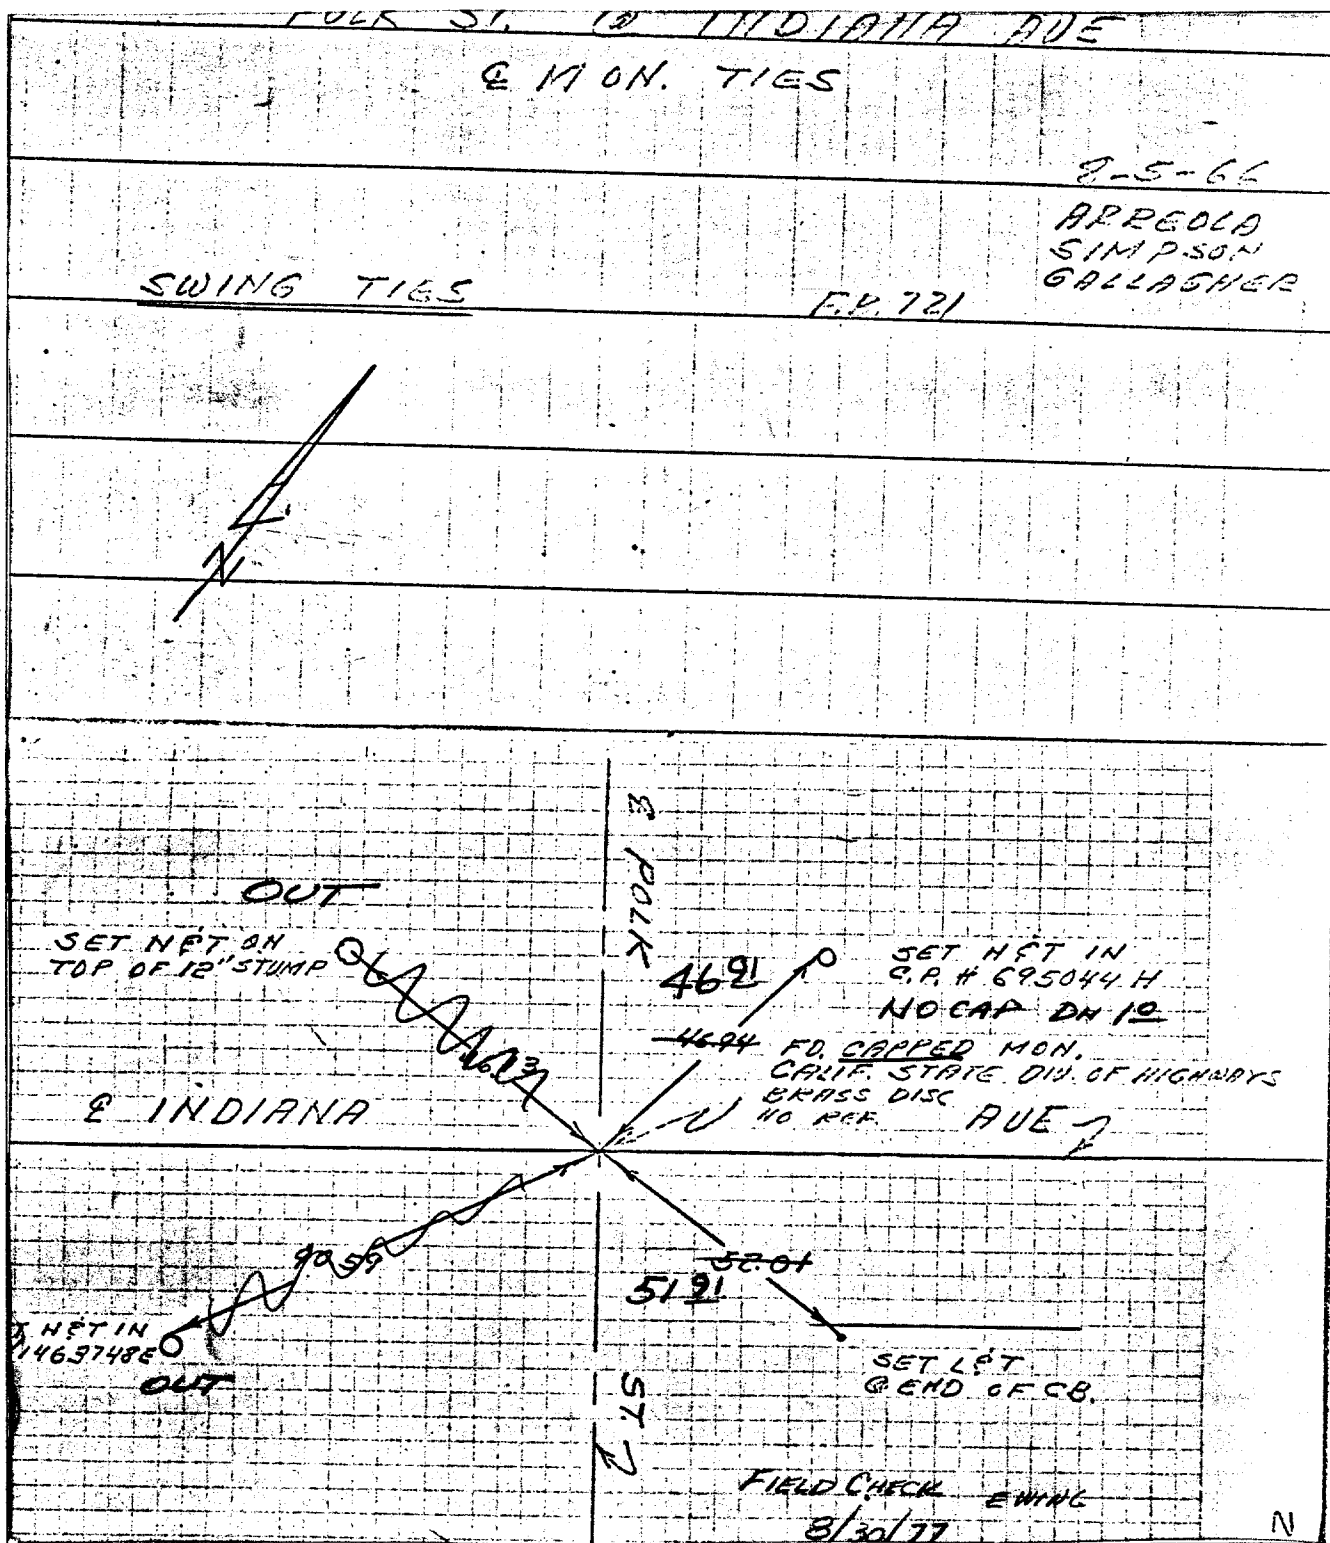 POLK ST. @ INDIANA AVE
℄ MON. TIES
8-5-66
ARREOLA
SIMPSON
GALLAGHER
SWING TIES
F.B. 721
N
℄ POLK
OUT
SET N&T ON
TOP OF 12" STUMP
46.91
46.94
SET N&T IN
C.P. # 695044 H
NO CAP DN 1.0
FD. CAPPED MON.
CALIF. STATE DIV. OF HIGHWAYS
BRASS DISC
NO REF.
℄ INDIANA
AVE
90.59
52.01
51.91
N&T IN
1463748E
OUT
SET L&T
@ END OF CB.
ST.
FIELD CHECK EWING
8/30/77
N